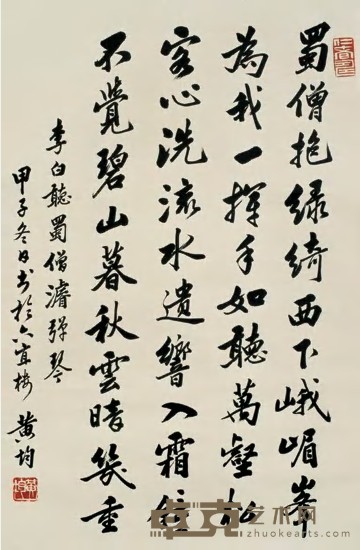 蜀僧抱绿绮西下峨嵋峯
為我一揮手如聽萬壑松
客心洗流水遺響入霜鐘
不覺碧山暮秋雲暗幾重
李白聽蜀僧濬弹琴
甲子冬日书於六宜楼 黄均
卓克艺术网
www.zhuokearts.com